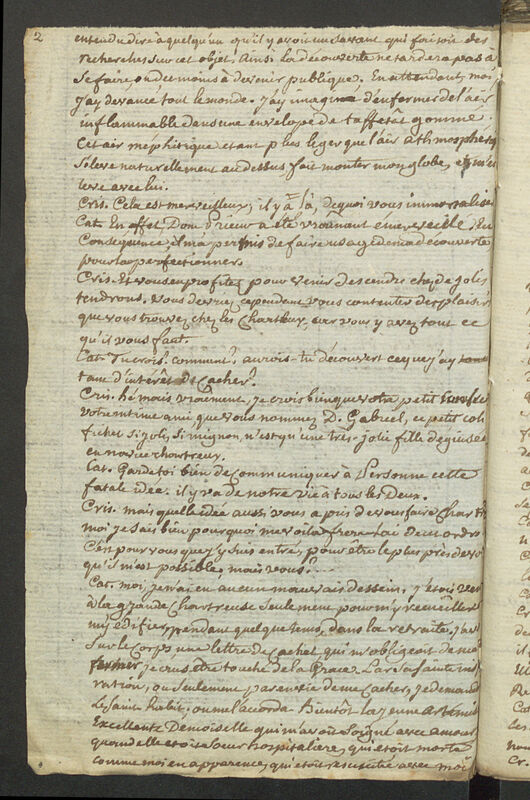 2
entendu dire à quelqu'un qu'il y avoit un savant qui faisoit des
recherches sur cet objet. Ainsi la découverte ne tardera pas à
se faire, ou du moins à devenir publique. En attendant, moi
j'ay devancé tout le monde. J'ay imaginé d'enfermer de l'air
inflammable dans une envelope de taffetas gommé
Cet air mephitique etant plus leger que l'air athmospheriq
s'eleve naturellement au dessus, fait monter mon globe, et m'en
leve avec lui.
Cris. Cela est merveilleux; il y a là, de quoi vous immortaliser
Cat. En effet, Dom Prieur a été vraiment émerveillé; En
Consequence, il m'a permis de faire usage de ma découverte
pour la perfectionner.
Cris. Et vous en profitez pour venir descendre chez de jolis
tendrons. Vous devriez cependant vous contenter des plaisirs
que vous trouvez chez les Chartreux, car vous y avez tout ce
qu'il vous faut.
Cat. Tu crois? comment? aurois-tu découvert ce que j'ay
tant d'intérêt de cacher?
Cris. hé mais vraiement, je crois bien que votre petit
votre intime ami que vous nommez D. Gabriel, ce petit coli
fichet si joli, si mignon, n'est qu'une très-jolie fille deguisée
en novice chartreux.
Cat. Garde toi bien de communiquer à Personne cette
fatale idée. il y va de notre vie à tous les Deux.
Cris. mais quelle idée aussi vous a pris de vous faire Chartr
moi je sais bien pourquoi me voila frere lai de cet ordre
C'est pour vous que j'y suis entré, pour etre le plus près de vo
qu'il m'est possible; mais vous?
Cat. moi, je n'ai eu aucun mauvais dessein. j'etois venu
à la grande Chartreuse seulement pour m'y recueillir
m'y edifier, pendant quelque tems, dans la retraite. J'av
sur le corps une lettre de cachet, qui m'obligeoit de me
fermer. je crus être touché de la Grace. Par sa sainte ins
piration, ou seulement par envie de me cacher, je demand
le saint habit, on me l'accorda. Bientôt la jeune
Excellente Demoiselle qui m'avoit soigné avec amour
quand elle etoit sœur hospitalière, qui etoit morte
comme moi en apparence, qui etoit resuscitée avec moi